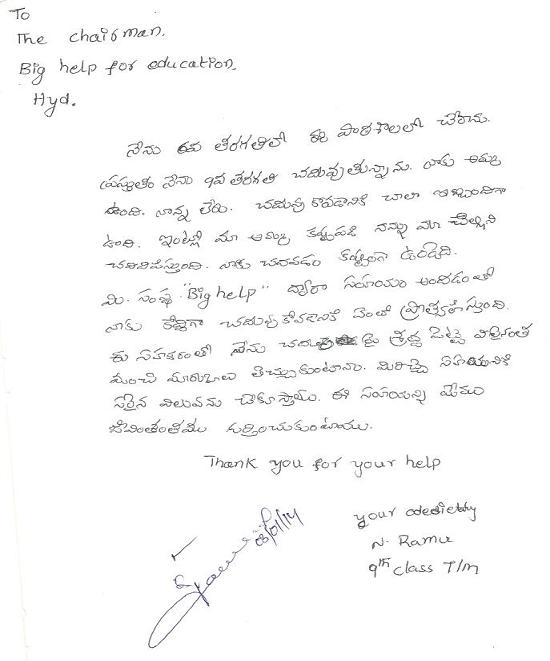 To
The chairman.
Big help for education.
Hyd.
నేను 6వ తరగతిలో ఈ పాఠశాలలో చేరాను.
ప్రస్తుతం నేను 9వ తరగతి చదువుతున్నాను. నాకు అమ్మ
ఉంది. నాన్న లేరు. చదువు కోవడానికి చాలా ఇబ్బందిగా
ఉంది. ఇంట్లో మా అమ్మ కష్టపడి నన్ను మా చెల్లిని
చదివిస్తుంది. నాకు చదవడం కష్టంగా ఉండేది.
మి. సంస్థ "Big help" ద్వారా సహాయం అందడంతో
నాకు చదువుకోవడానికి ఎంతో ప్రోత్సహిస్తుంది.
ఈ సహకారంతో నేను శ్రద్ద పెట్టి
మంచి మార్కులు తెచ్చుకుంటాను. మిరిచ్చె సహయనికి
సరైన విలువను చేకూస్తాను. ఈ సహయన్ని మేము
జీవితంతము గుర్తించుకుంటాము.
Thank you for your help
your
N. Ramu
9th class T/m
03/01/14